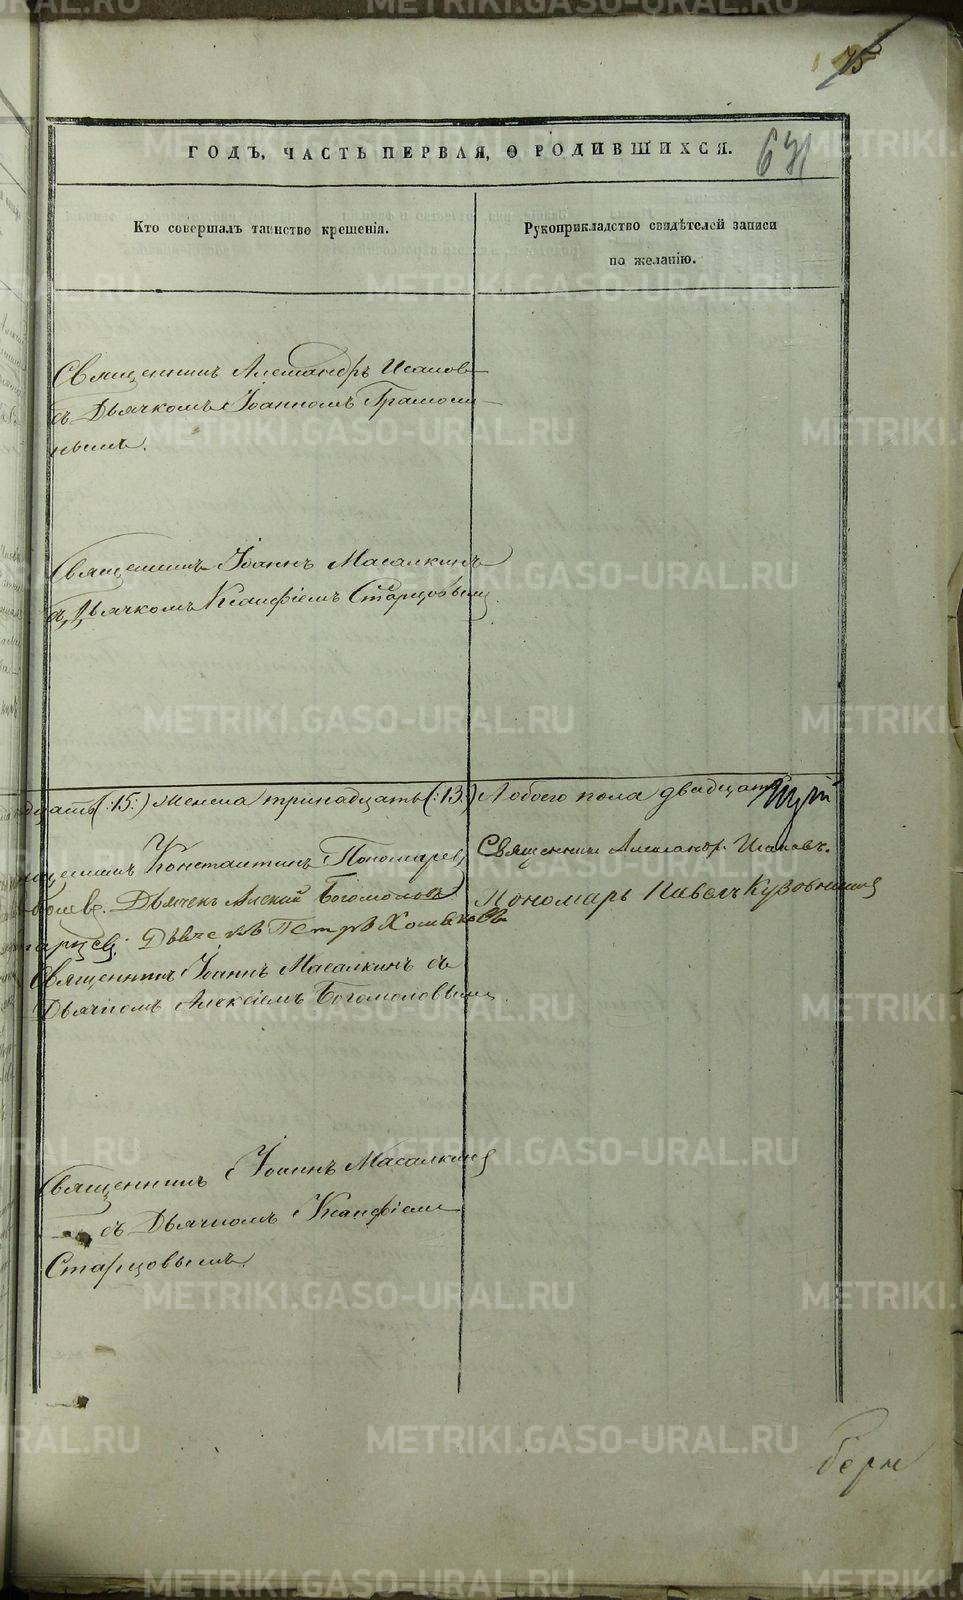 75
ГОДЪ, ЧАСТЬ ПЕРВАЯ, О РОДИВШИХСЯ.
Кто совершалъ таинство крещенія.
Рукоприкладство свидѣтелей записи
по желанію.
Священникъ Александръ Исаковъ
съ Дьячкомъ Іоанномъ
нымъ.
Священникъ Іоаннъ Масалкинъ
съ Дьячкомъ Ксанфіемъ Старцовымъ
(:15:) женска тринадцать (:13:) А обоего пола двадцать
Константинъ Пономаревъ
Дьячекъ Алексій Богомоловъ
Дьячекъ Петръ Хомяковъ
Священникъ Іоаннъ Масалкинъ съ
Дьячкомъ Алексіемъ Богомоловымъ.
Священникъ Александр. Исаковъ.
Пономарь Павелъ Кузовниковъ
Священникъ Іоаннъ Масалкинъ
съ Дьячкомъ Ксанфіемъ
Старцовымъ.
METRIKI.GASO-URAL.RU